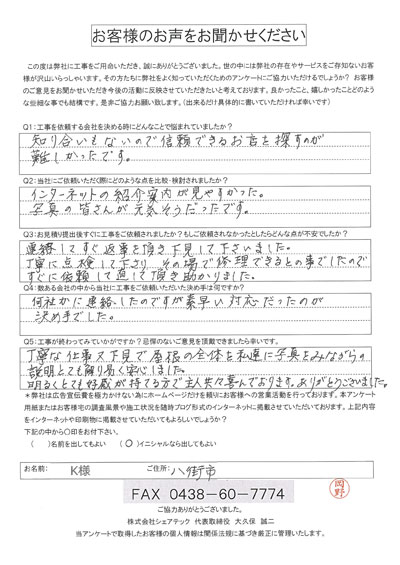 お客様のお声をお聞かせください
この度は弊社に工事をご用命いただき、誠にありがとうございました。世の中には弊社の存在やサービスをご存知ないお客
様が沢山いらっしゃいます。その方たちに弊社をよく知っていただくためのアンケートにご協力いただけるでしょうか? お客様
のご意見をお聞かせいただき今後の活動に反映させていただきたいと考えております。良かったこと、嬉しかったことどのよう
な些細な事でも結構です。是非ご協力お願い致します。(出来るだけ具体的に書いていただければ幸いです)
Q1:工事を依頼する会社を決める時にどんなことで悩まれていましたか?
知り合いもないので信頼できるお店を探すのが
難しかったです。
Q2:当社にご依頼いただく際にどのような点を比較・検討されましたか?
インターネットの紹介案内が見やすかった。
写真の皆さんが元気そうだったです。
Q3:お見積り提出後すぐに工事をご依頼されましたか?もしご依頼されなかったとしたらどんな点が不安でしたか?
連絡してすぐ返事を頂き下見して下さいました。
丁寧に点検して下さり その場で修理できるとの事でしたので
すぐに依頼して直して頂き助かりました。
Q4:数ある会社の中から当社に工事をご依頼いただいた決め手は何ですか?
何社かに連絡したのですが素早い対応だったのが
決め手でした。
Q5:工事が終わってみていかがですか?忌憚のないご意見を頂戴できましたら幸いです。
丁寧な仕事又下見で屋根の全体を私達に写真をみながらの
説明とても解り易く安心しました。
明るくとても好感が持てる方で主人共々喜んでおります。ありがとうございました。
*弊社は広告宣伝費を極力かけない為にホームページだけを頼りにお客様への営業活動を行っております。本アンケート
用紙またはお客様宅の調査風景や施工状況を随時ブログ形式のインターネットに掲載させていただいております。上記内容
をインターネットや印刷物に掲載させていただいてもよろしいでしょうか?
下記の中から〇印をお付下さい。
( )名前を出してもよい (〇)イニシャルなら出してもよい
お名前: K様 ご住所: 八街市
FAX 0438-60-7774
岡野
ご協力ありがとうございました。
株式会社シェアテック 代表取締役 大久保 誠二
当アンケートで取得したお客様の個人情報は関係法規に基づき厳正に管理いたします。